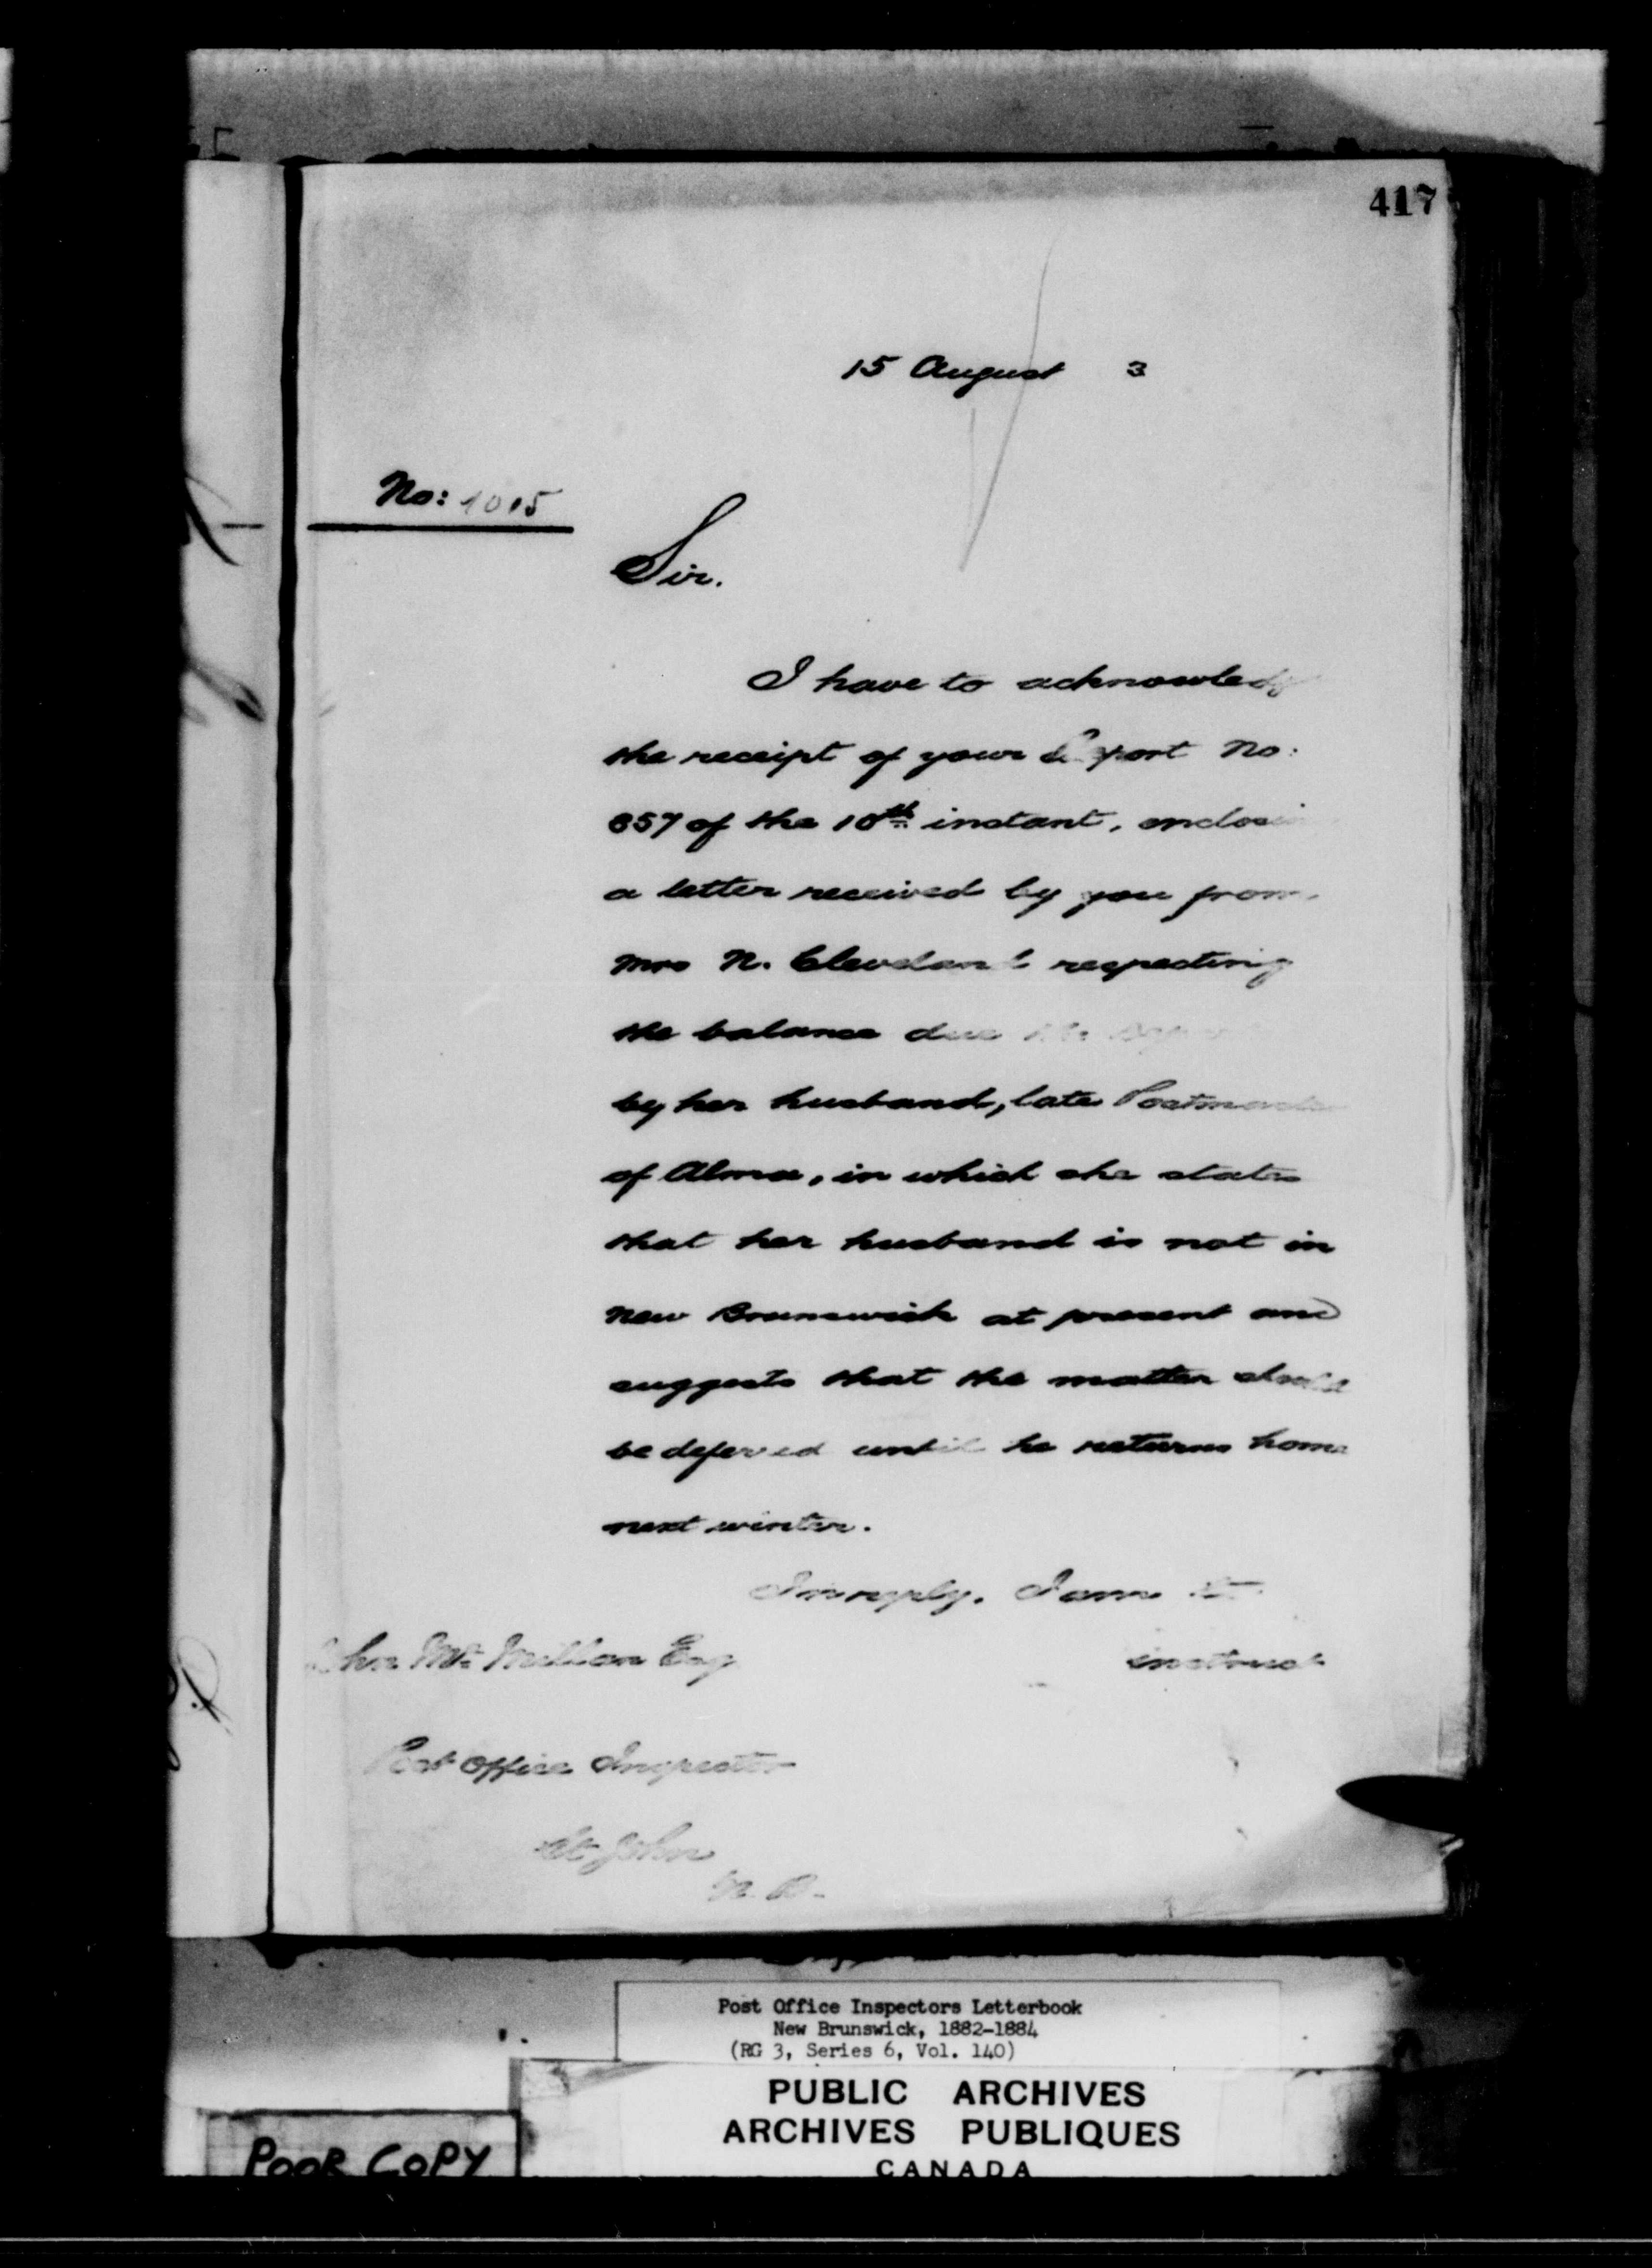 417
15 August 3
No: 1015
Sir.
I have to acknowledg
the receipt of your Report No:
657 of the 10th instant, enclosin
a letter received by you from
Mrs N. Cleveland respecting
the balance due the
by her husband, late Postmaster
of Alma, in which she states
that her husband is not in
New Brunswick at present and
suggests that the matter should
be deferred until he returns home
next winter.
In reply, I am to
instruct
John McMillan Esq
Post Office Inspector
St John
N.B.
Post Office Inspectors Letterbook
New Brunswick, 1882-1884
(RG 3, Series 6, Vol. 140)
PUBLIC ARCHIVES
ARCHIVES PUBLIQUES
CANADA
POOR COPY